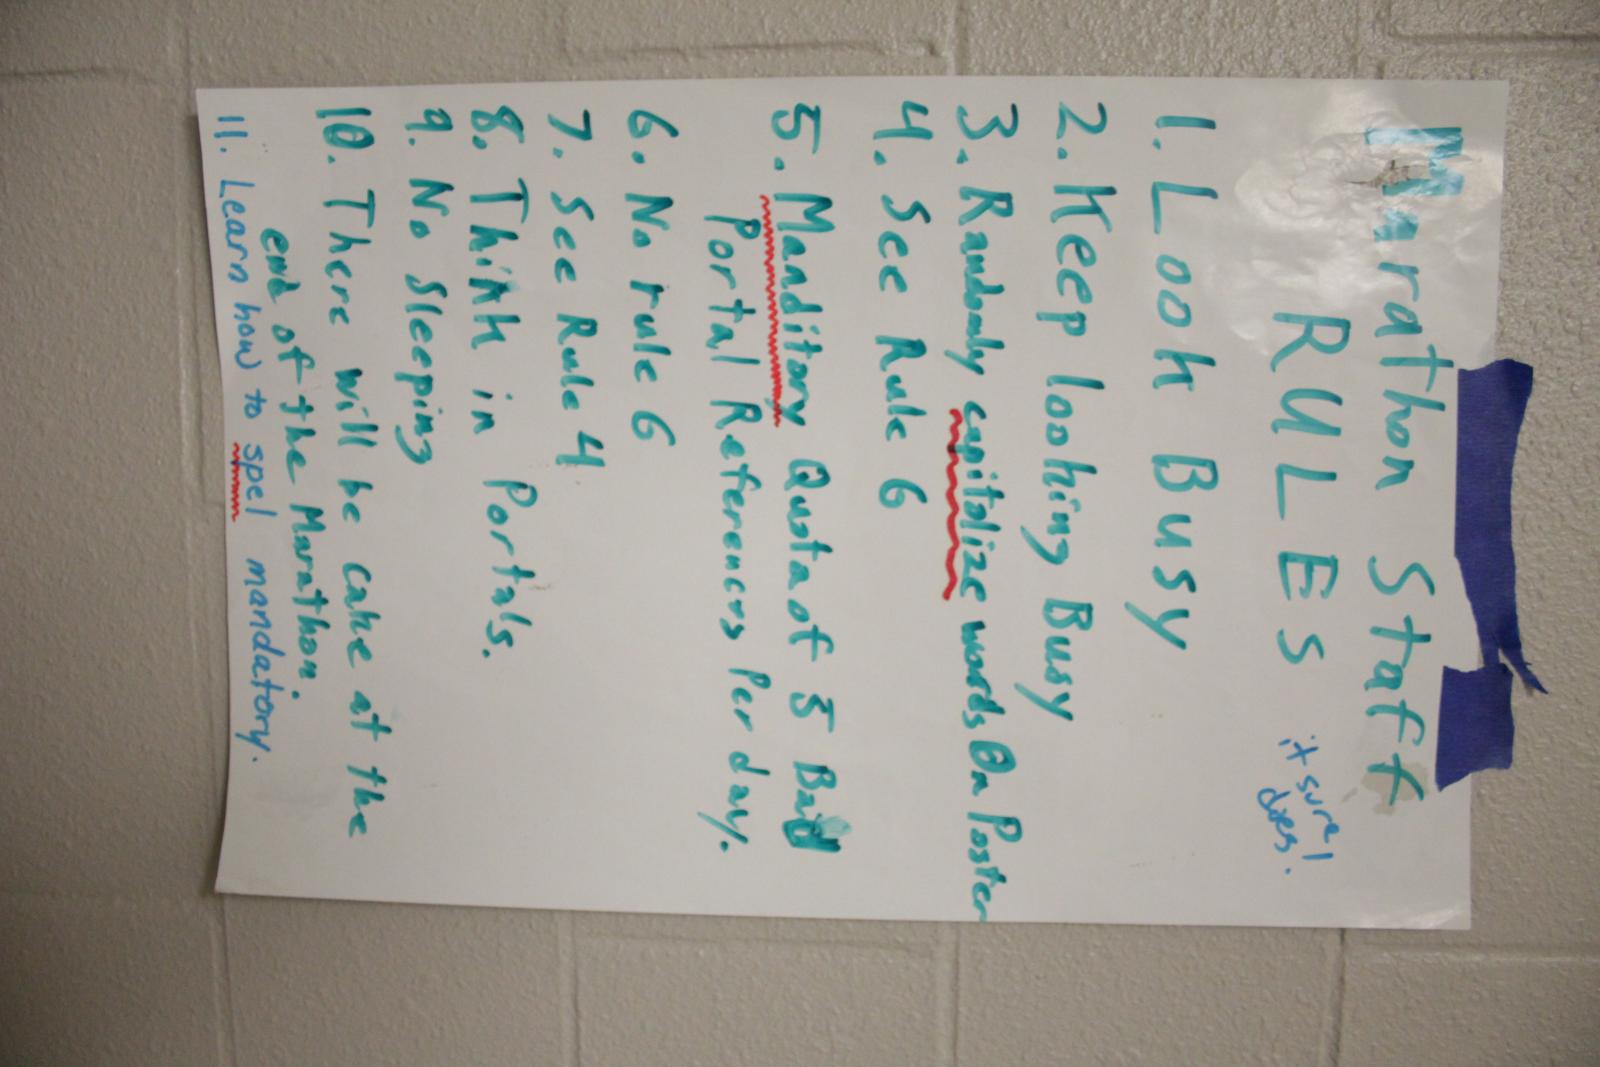 Marathon Staff
RULES
it sure!
does!
1. Look Busy
2. Keep looking Busy
3. Randomly capitolize words On Poster
4. See Rule 6
5. Manditory Quota of 5 Bad
Portal References Per day.
6. No rule 6
7. See Rule 4
8. Think in Portals.
9. No Sleeping
10. There will be cake at the
end of the Marathon.
11. Learn how to spel mandatory.